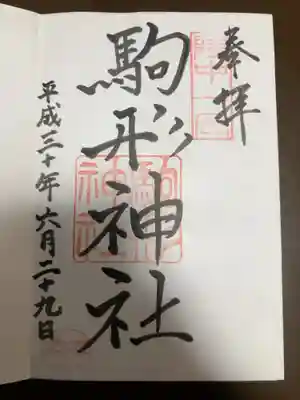 奉拝
駒形神社
平成三十年六月二十九日
駒形
神社